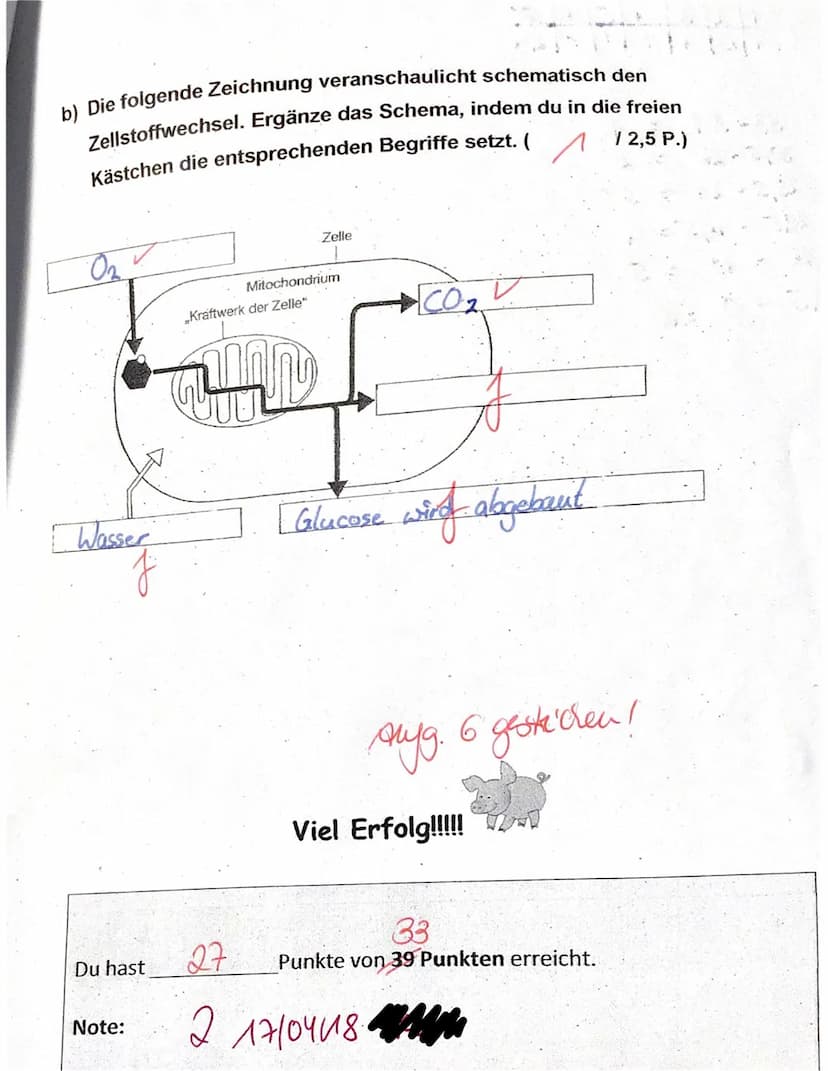 b) Die folgende Zeichnung veranschaulicht schematisch den
Zellstoffwechsel. Ergänze das Schema, indem du in die freien
Kästchen die entsprechenden Begriffe setzt. ( 1 / 2,5 P.)
Zelle
O₂ ✓
Mitochondrium
„Kraftwerk der Zelle"
CO₂ ✓
f
Glucose wird abgebaut
f
Wasser
f
Aufg. 6 gestrichen!
Viel Erfolg!!!!!
33
Du hast 27 Punkte von 39 Punkten erreicht.
Note: 2 17/04/18